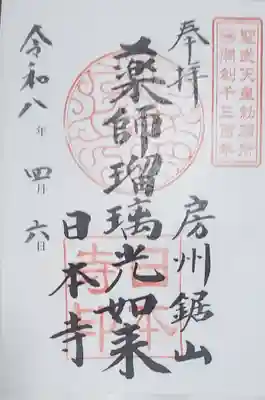 聖武天皇勅願所
開創千三百年
奉拝
房州鋸山
薬師瑠璃光如来
日本寺
令和八年四月六日
日本寺印